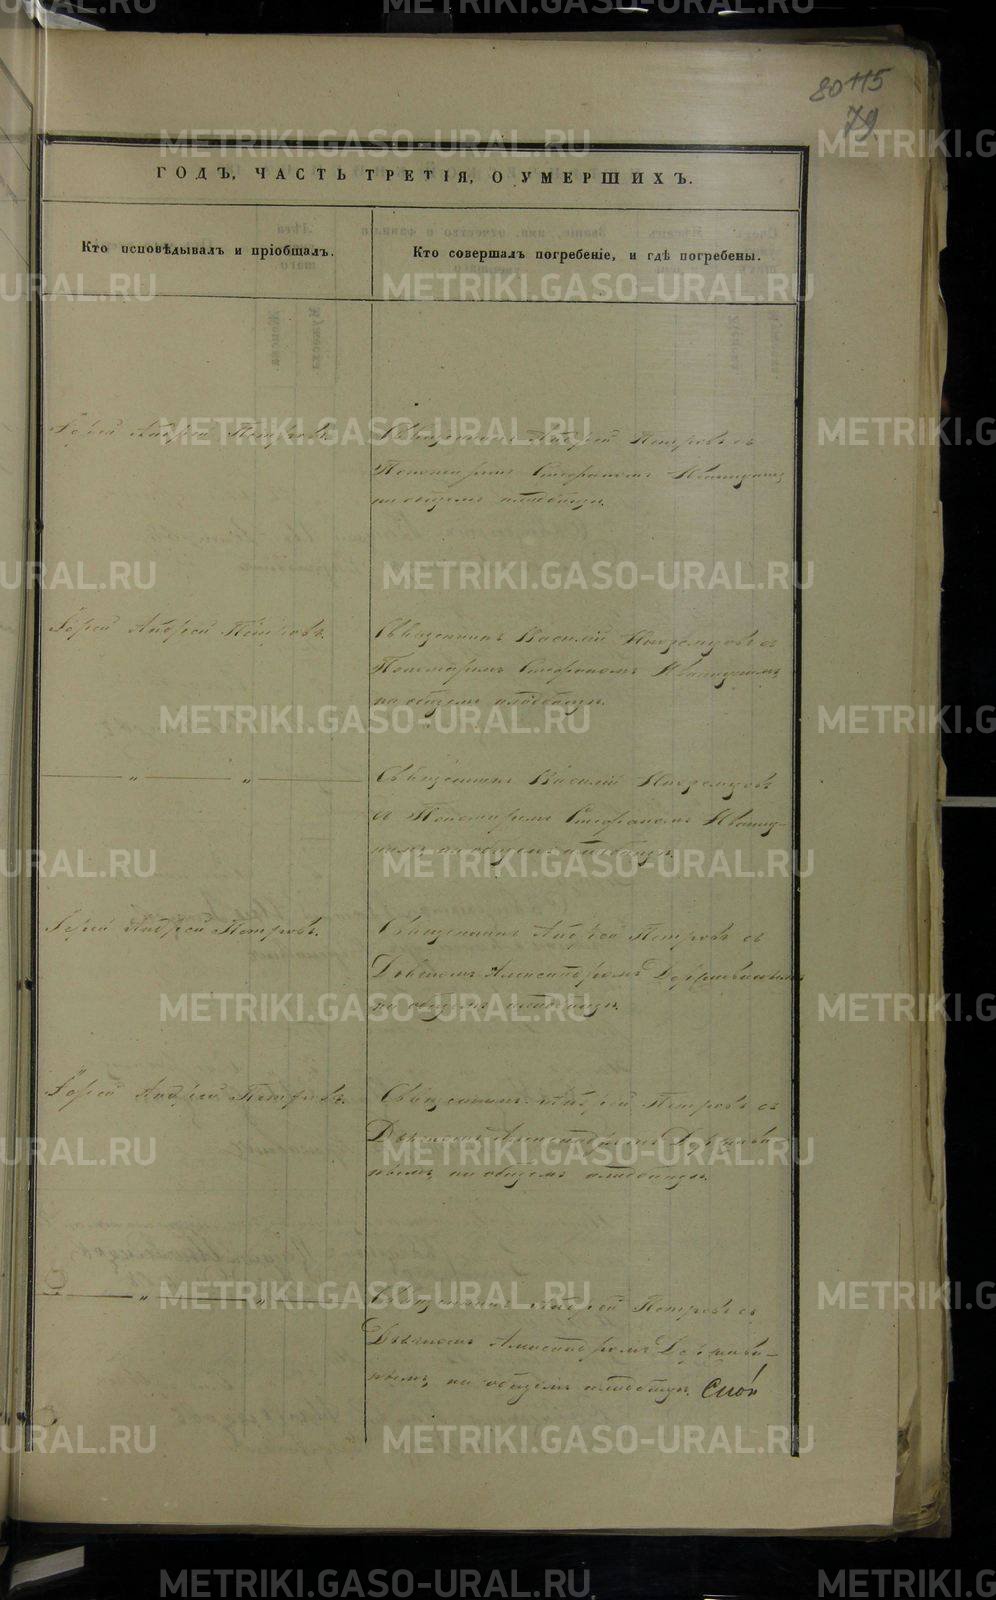 80 115
79
ГОДЪ, ЧАСТЬ ТРЕТІЯ, О УМЕРШИХЪ.
Кто исповѣдывалъ и пріобщалъ.
Кто совершалъ погребеніе, и гдѣ погребены.
Іерей Андрей Петровъ.
Священникъ Андрей Петровъ съ
Пономаремъ Стефаномъ
на общемъ кладбищѣ.
Іерей Андрей Петровъ.
Священникъ Василій съ
Пономаремъ Стефаномъ
на общемъ кладбищѣ.
— „ — „ —
Священникъ Василій
съ Пономаремъ Стефаномъ
на общемъ кладбищѣ.
Іерей Андрей Петровъ.
Священникъ Андрей Петровъ съ
Дьячкомъ Александромъ Державинымъ
на общемъ кладбищѣ.
Іерей Андрей Петровъ.
Священникъ Андрей Петровъ съ
Дьячкомъ Александромъ Держави-
нымъ, на общемъ кладбищѣ.
— „ — „ —
Священникъ Андрей Петровъ съ
Дьячкомъ Александромъ Держави-
нымъ, на общемъ кладбищѣ.
METRIKI.GASO-URAL.RU